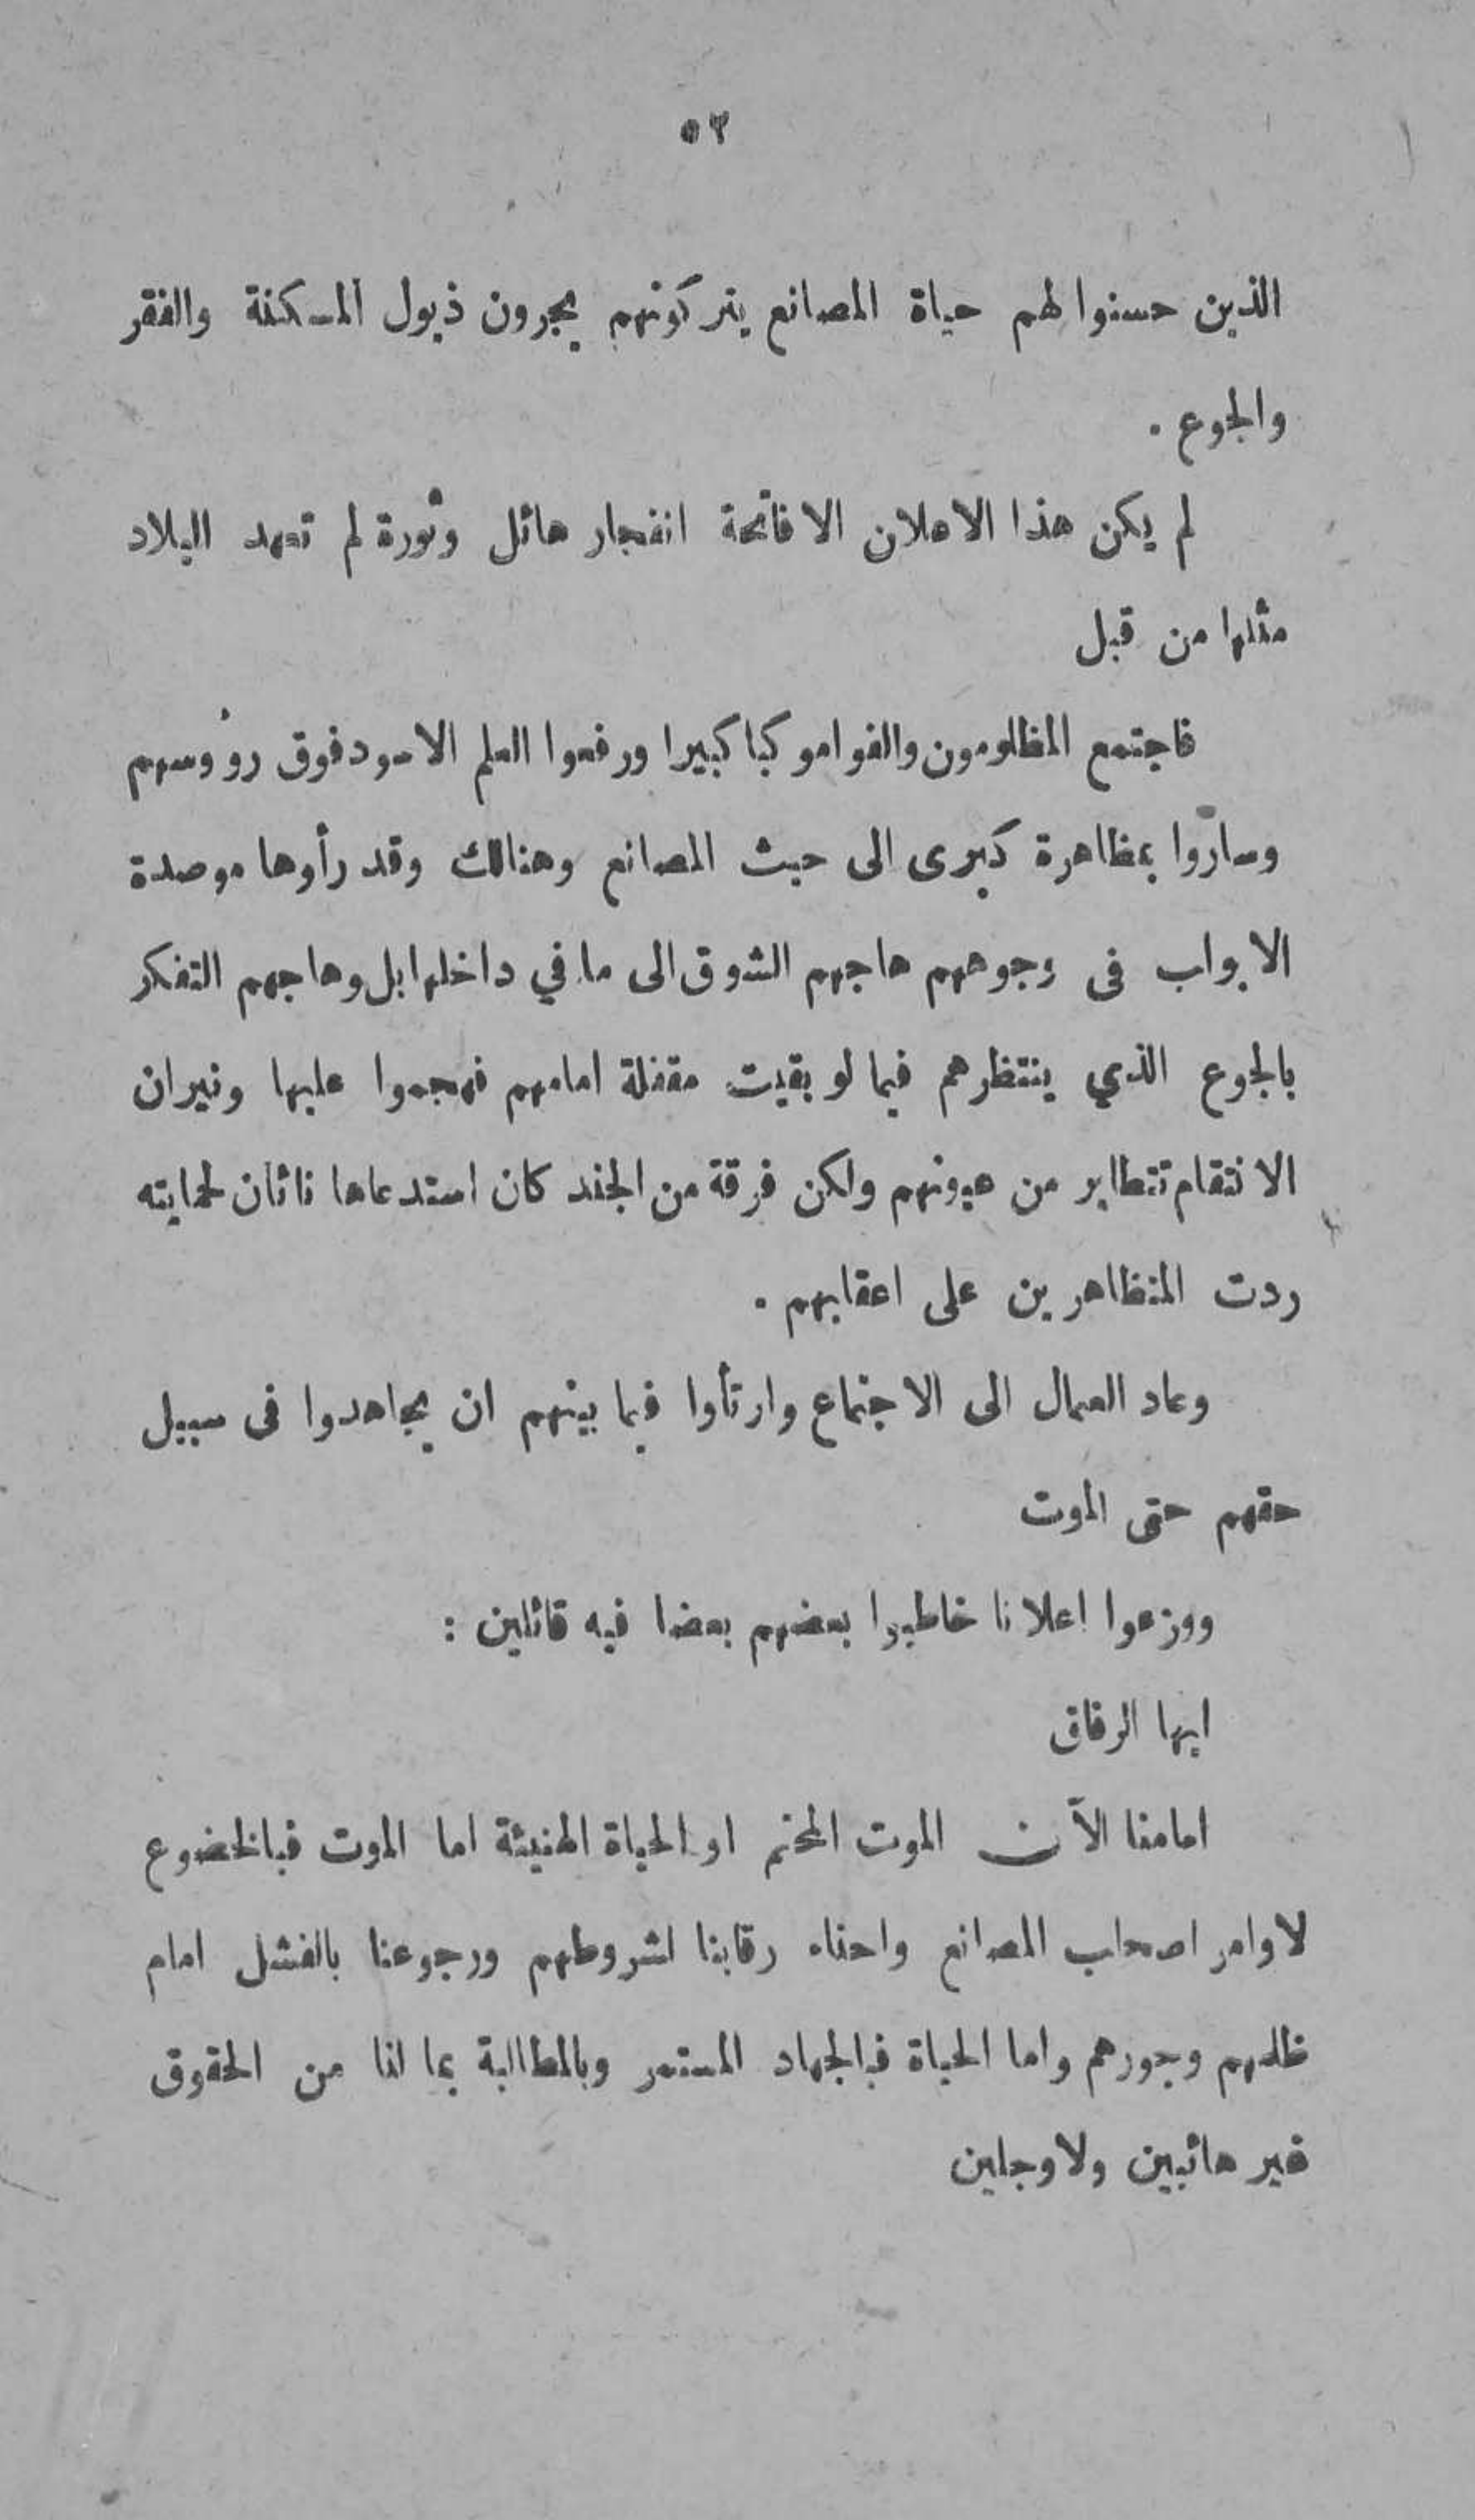 ٥٢
الذين حسنوا لهم حياة المصانع يتركونهم يجرون ذيول المسكنة والفقر
والجوع .
لم يكن هذا الاعلان الا فاتحة انفجار هائل وثورة لم تعهد البلاد
مثلها من قبل
فاجتمع المظلومون والفوا موكبا كبيرا ورفعوا العلم الاسود فوق رؤوسهم
وساروا بمظاهرة كبرى الى حيث المصانع وهنالك وقد رأوها موصدة
الابواب فى وجوههم هاجهم الشوق الى ما في داخلها بل وهاجهم التفكر
بالجوع الذي ينتظرهم فيما لو بقيت مقفلة امامهم فهجموا عليها ونيران
الانتقام تتطاير من عيونهم ولكن فرقة من الجند كان استدعاها ناثان لحمايته
ردت المتظاهرين على اعقابهم .
وعاد العمال الى الاجتماع وارتأوا فيما بينهم ان يجاهدوا فى سبيل
حقهم حتى الموت
ووزعوا اعلانا خاطبوا بعضهم بعضا فيه قائلين :
ايها الرفاق
امامنا الآن الموت المحتم او الحياة الهنيئة اما الموت فبالخضوع
لاوامر اصحاب المصانع واحناء رقابنا لشروطهم ورجوعنا بالفشل امام
ظلمهم وجورهم واما الحياة فبالجهاد المستمر وبالمطالبة بما لنا من الحقوق
غير هائبين ولا وجلين